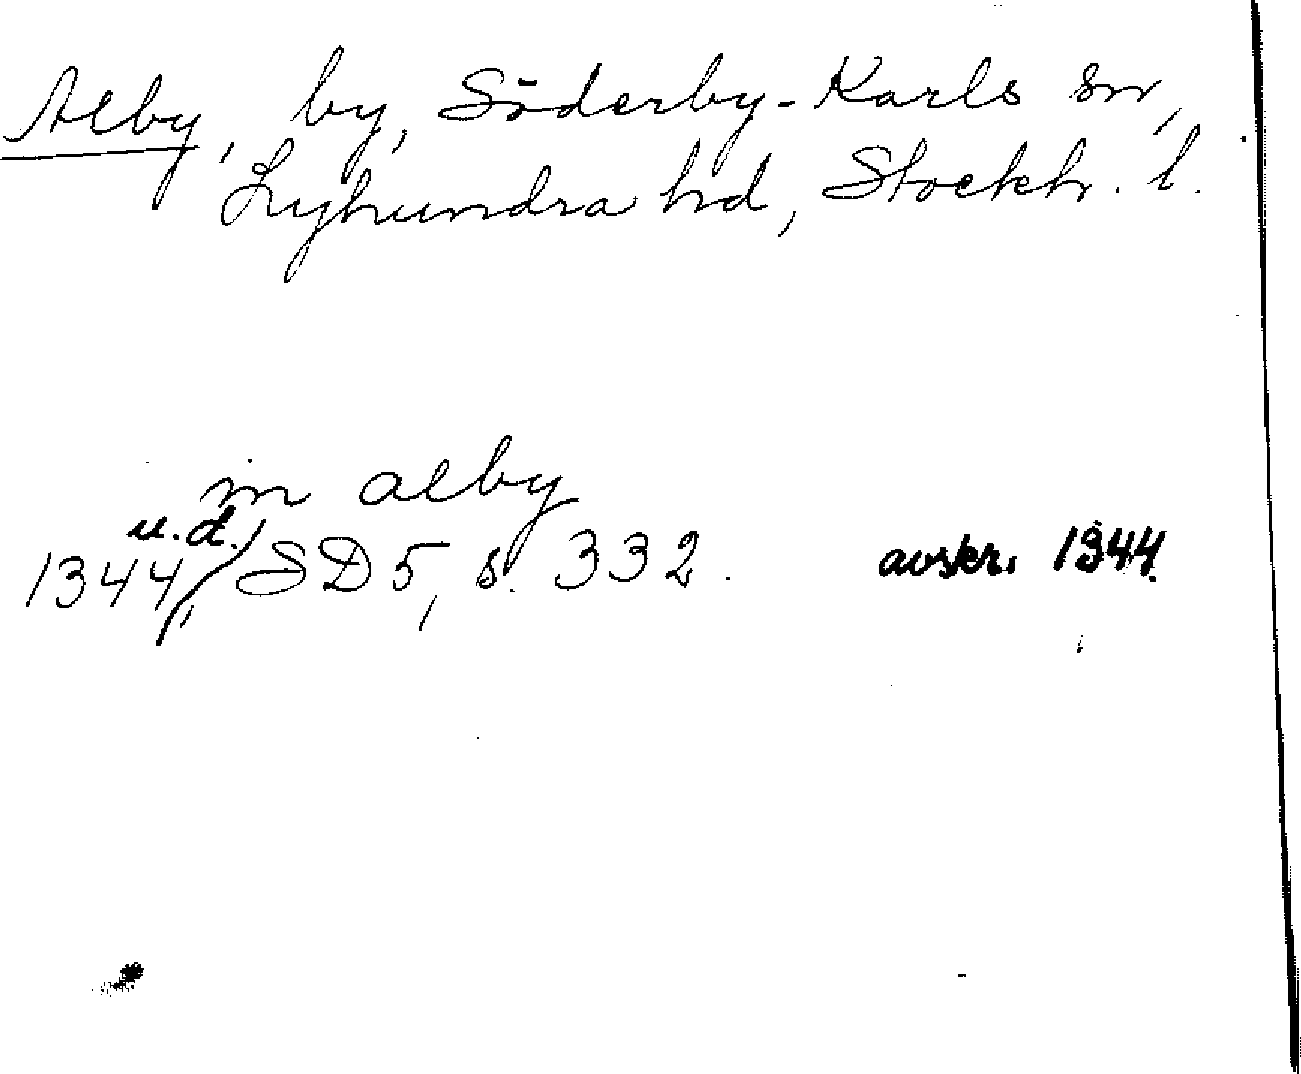 Alby, by, Söderby-Karls sn,
Lyhundra hd, Stockh. l.
in alby
1344, u.d. SD 5, s. 332. avskr. 1344.